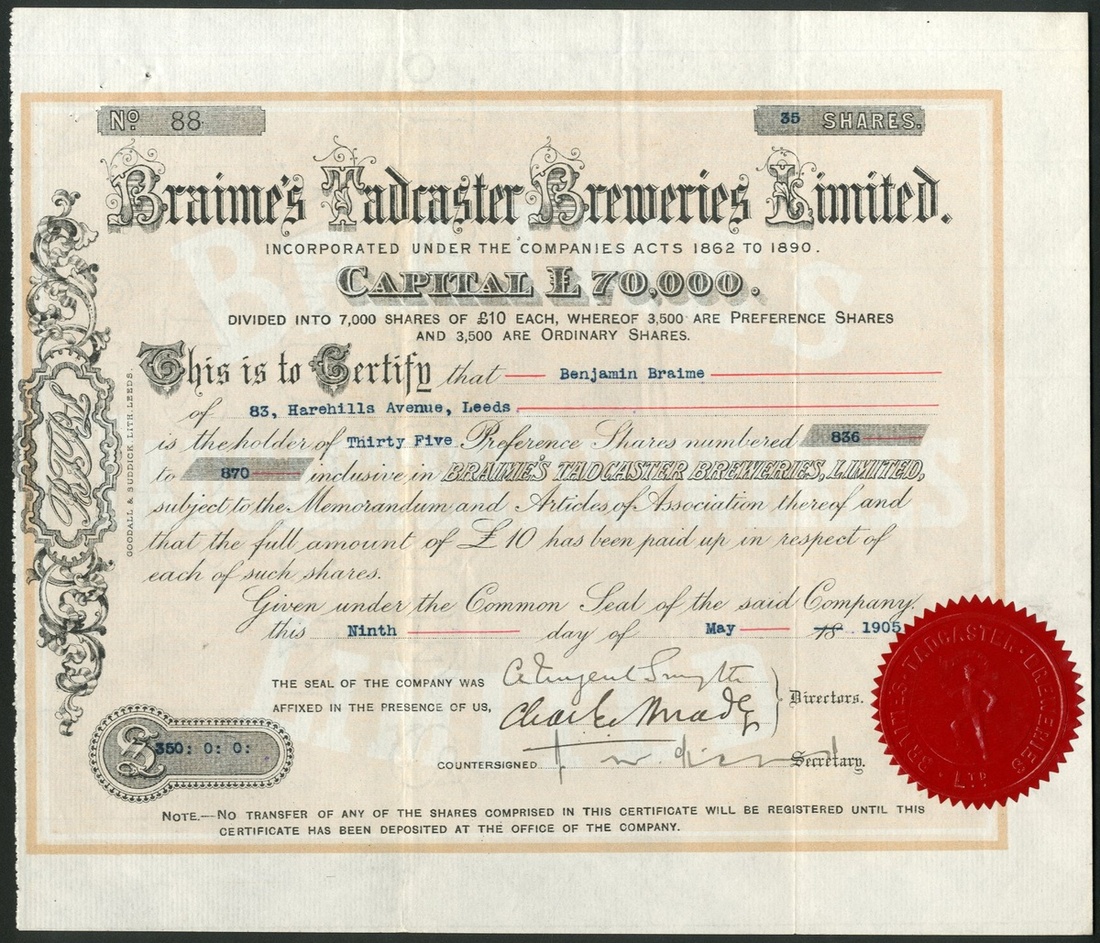 No. 88
35 SHARES.
Braime's Tadcaster Breweries Limited.
INCORPORATED UNDER THE COMPANIES ACTS 1862 TO 1890.
CAPITAL £70,000.
DIVIDED INTO 7,000 SHARES OF £10 EACH, WHEREOF 3,500 ARE PREFERENCE SHARES
AND 3,500 ARE ORDINARY SHARES.
This is to Certify that Benjamin Braime
of 83, Harehills Avenue, Leeds,
is the holder of Thirty Five Preference Shares numbered 836
to 870 inclusive in BRAIME'S TADCASTER BREWERIES, LIMITED,
subject to the Memorandum and Articles of Association thereof and
that the full amount of £10 has been paid up in respect of
each of such shares.
Given under the Common Seal of the said Company.
this Ninth day of May 18 1905
THE SEAL OF THE COMPANY WAS
AFFIXED IN THE PRESENCE OF US,
Directors.
COUNTERSIGNED
Secretary.
£ 350: 0: 0:
NOTE.—NO TRANSFER OF ANY OF THE SHARES COMPRISED IN THIS CERTIFICATE WILL BE REGISTERED UNTIL THIS
CERTIFICATE HAS BEEN DEPOSITED AT THE OFFICE OF THE COMPANY.
GOODALL & SUDDICK, LITH. LEEDS.
BRAIME'S TADCASTER BREWERIES LTD